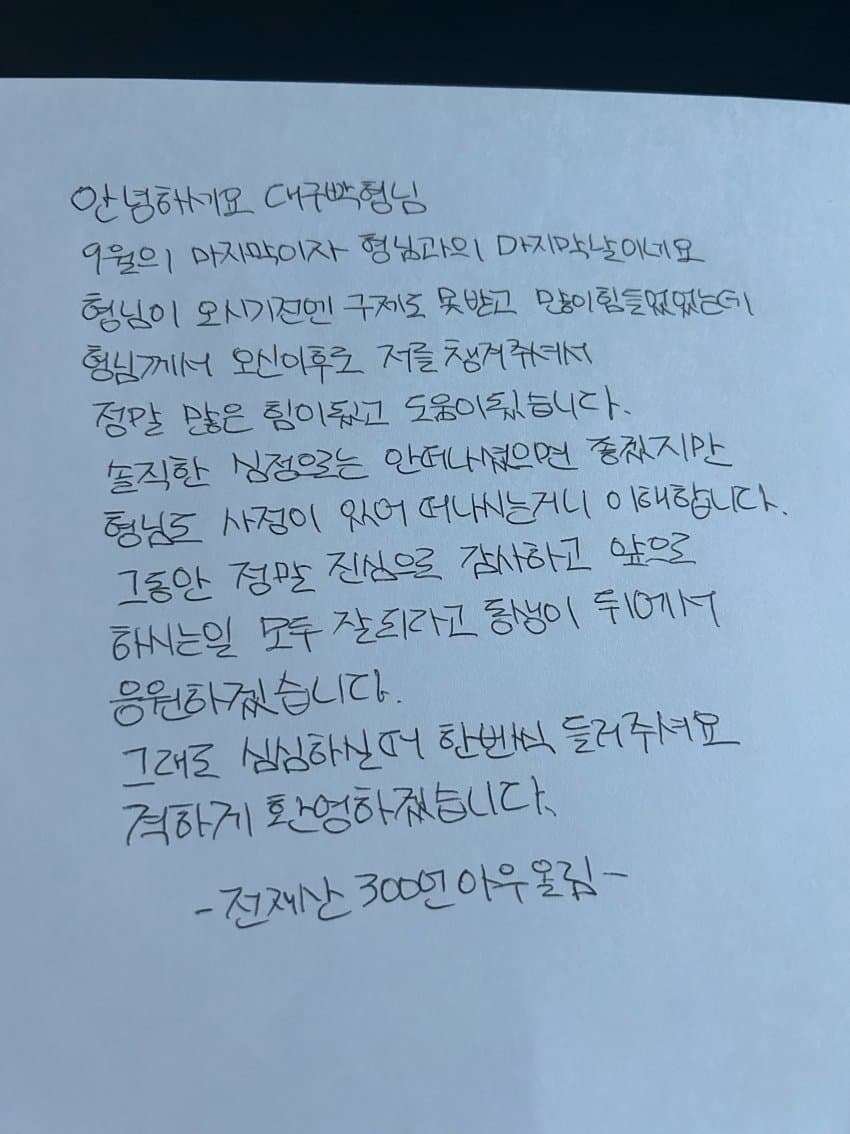 안녕하세요 대구박형님
9월의 마지막이자 형님과의 마지막날이네요
형님이 오시기전엔 구제도 못받고 많이힘들었었는데
형님께서 오신이후로 저를 챙겨주셔서
정말 많은 힘이됬고 도움이됬습니다.
솔직한 심정으로는 안떠나셨으면 좋겠지만
형님도 사정이 있어 떠나시는거니 이해합니다.
그동안 정말 진심으로 감사하고 앞으로
하시는일 모두 잘되라고 동생이 뒤에서
응원하겠습니다.
그래도 심심하실때 한번씩 들러주셔요
격하게 환영하겠습니다.
- 전재산 300언 아우 올림 -